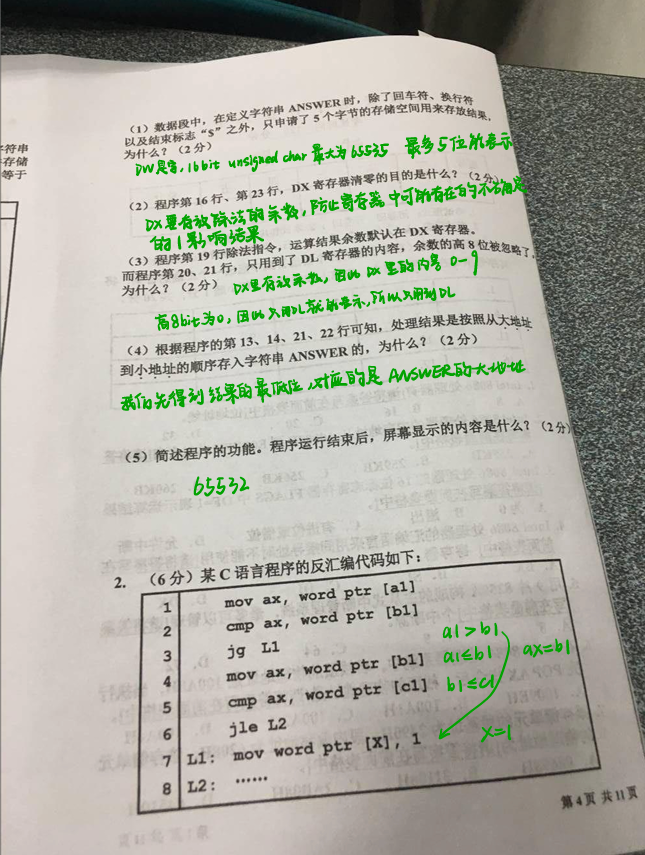 符串
存储
等于
(1) 数据段中，在定义字符串 ANSWER 时，除了回车符、换行符
以及结束标志“$”之外，只申请了 5 个字节的存储空间用来存放结果，
为什么？(2 分)
DW是字, 16bit unsigned char 最大为 65535 最多5位能表示
(2) 程序第 16 行、第 23 行，DX 寄存器清零的目的是什么？(2 分)
DX里存放除法的余数, 防止寄存器中可能存在的不确定
的1影响结果
(3) 程序第 19 行除法指令，运算结果余数默认在 DX 寄存器。
而程序第 20、21 行，只用到了 DL 寄存器的内容，余数的高 8 位被忽略了，
为什么？(2 分)
DX里存放余数, 因此 DX 里的内容 0-9
高8bit为0, 因此只用DL就能表示, 所以只用到DL
(4) 根据程序的第 13、14、21、22 行可知，处理结果是按照从大地址
到小地址的顺序存入字符串 ANSWER 的，为什么？(2 分)
我们先得到结果的最低位, 对应的是 ANSWER的大地址
(5) 简述程序的功能。程序运行结束后，屏幕显示的内容是什么？(2 分)
65532
2. (6 分) 某 C 语言程序的反汇编代码如下：
1 mov ax, word ptr [a1]
2 cmp ax, word ptr [b1]
3 jg L1 a1>b1
4 mov ax, word ptr [b1] a1≤b1 ax=b1
5 cmp ax, word ptr [c1] b1≤c1
6 jle L2
7 L1: mov word ptr [X], 1 X=1
8 L2: ……
第 4 页 共 11 页